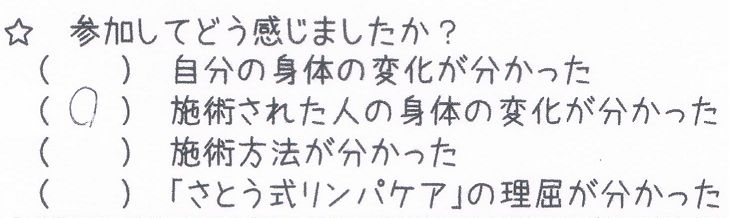 ☆ 参加してどう感じましたか？
( ) 自分の身体の変化が分かった
( O ) 施術された人の身体の変化が分かった
( ) 施術方法が分かった
( ) 「さとう式リンパケア」の理屈が分かった